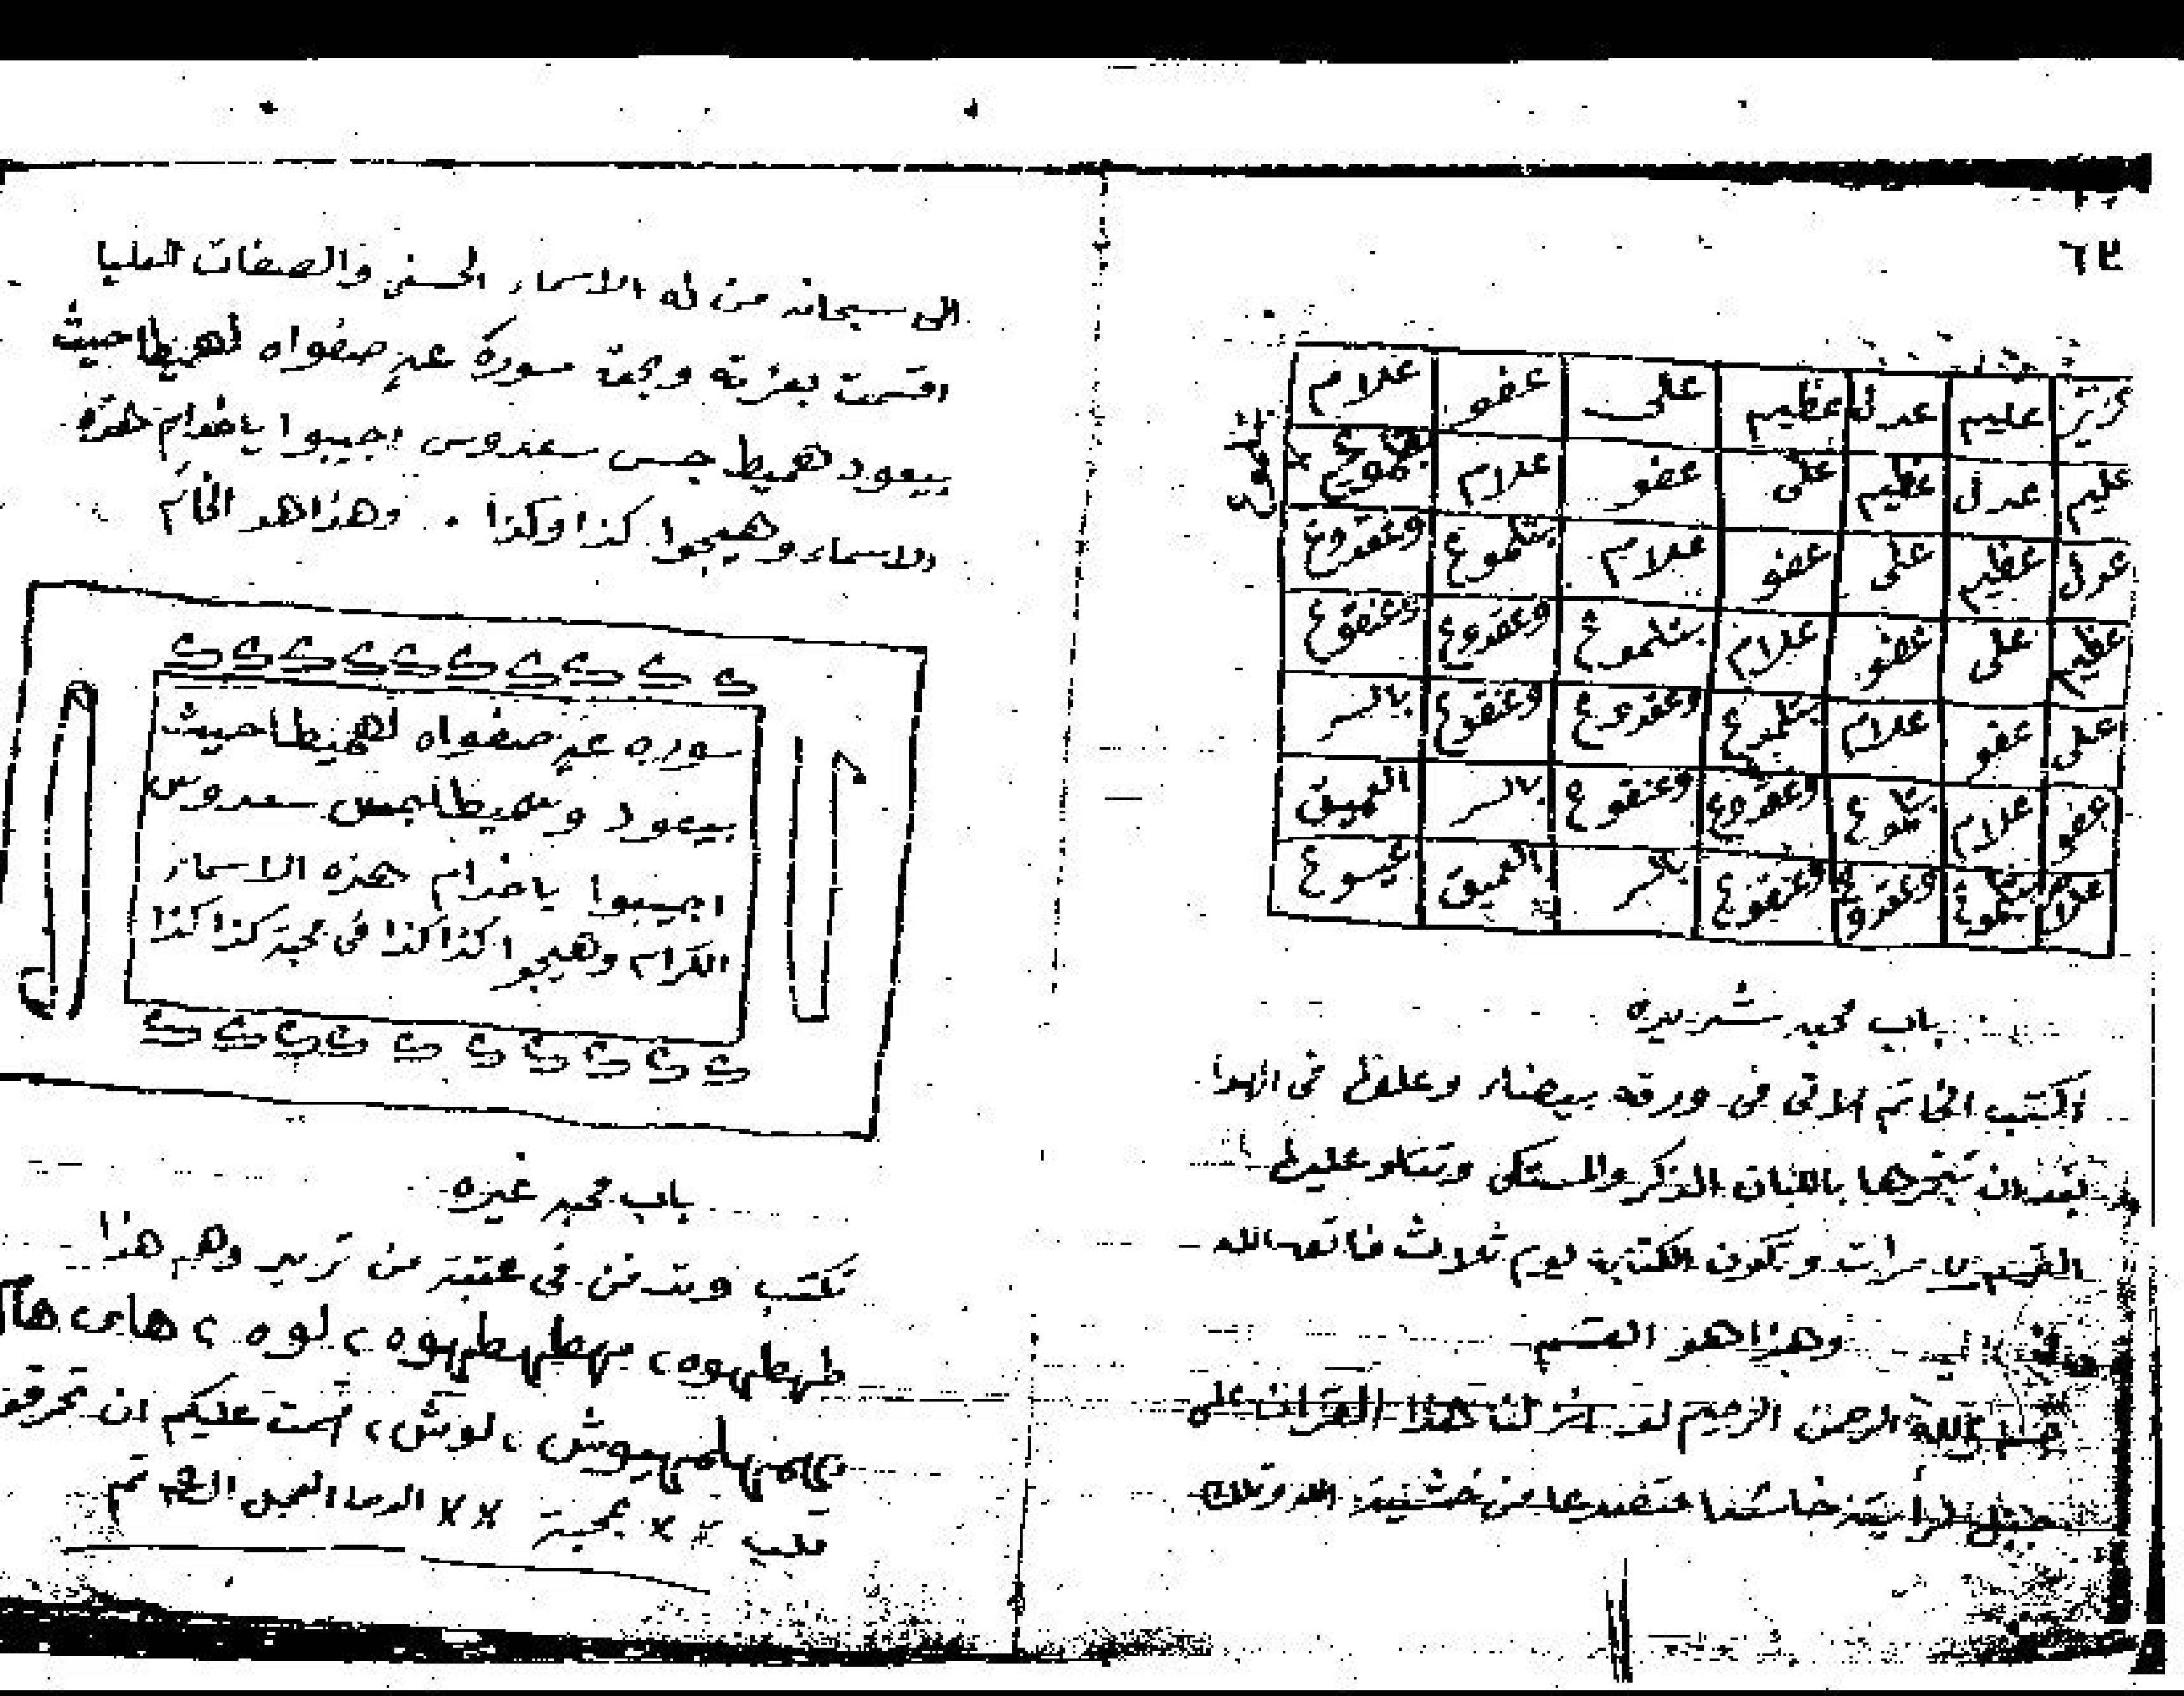 ٦٢
عزيز عليم عدل عظيم على عفو علام
عليم عدل عظيم على عفو علام
عدل عظيم على عفو علام بتلموع وعقدوع
عظيم على عفو علام بتلموع وعقدوع وعنقوع
على عفو علام بتلموع وعقدوع وعنقوع بالسر
عفو علام بتلموع وعقدوع وعنقوع بالسر العميق
علام بتلموع وعقدوع وعنقوع بالسر العميق عيسوع
باب محبه شديده
اكتب الخاتم الاتى فى ورقه بيضاء وعلقها فى الهوا
بعد ان تبخرها باللبان الذكر والمستكى وتتلو عليها
القسم ٧ مرات وتكون الكتابة يوم ثلاث فاتق الله
وهذا هو القسم
بسم الله الرحمن الرحيم لو انزلنا هذا القران على
جبل لرأيته خاشعا متصدعا من خشية الله وتلك
الى سبحانه من له الاسماء الحسنى والصفات العليا
اقسمت بعزته وبحق سوره عبر صفواه لهميطا حيث
بيعود هميط جس سعدوس اجيبوا ياخدام هذه
الاسماء وهيجوا كذا وكذا . وهذا هو الخاتم
سوره عبر صفواه لهميطا حيث
بيعود سعدوس
اجيبوا ياخدام هذه الاسماء
الكرام وهيجوا كذا كذا فى محبة كذا كذا
باب محبه غيره
تكتب وتدفن فى عتبة من تريد وهم هذا
طهطهوه ، مهطهطهوه ، لوه ،
لوش ، اقسمت عليكم ان تحرقو
قلب ×× بمحبة ×× الوحا العجل تم